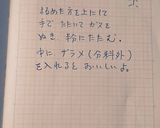 まるめた方を上にして
手でたたいてガスを
ぬき 粉にたたむ。
中に ザラメ(分料外)
を入れると おいしいよ。